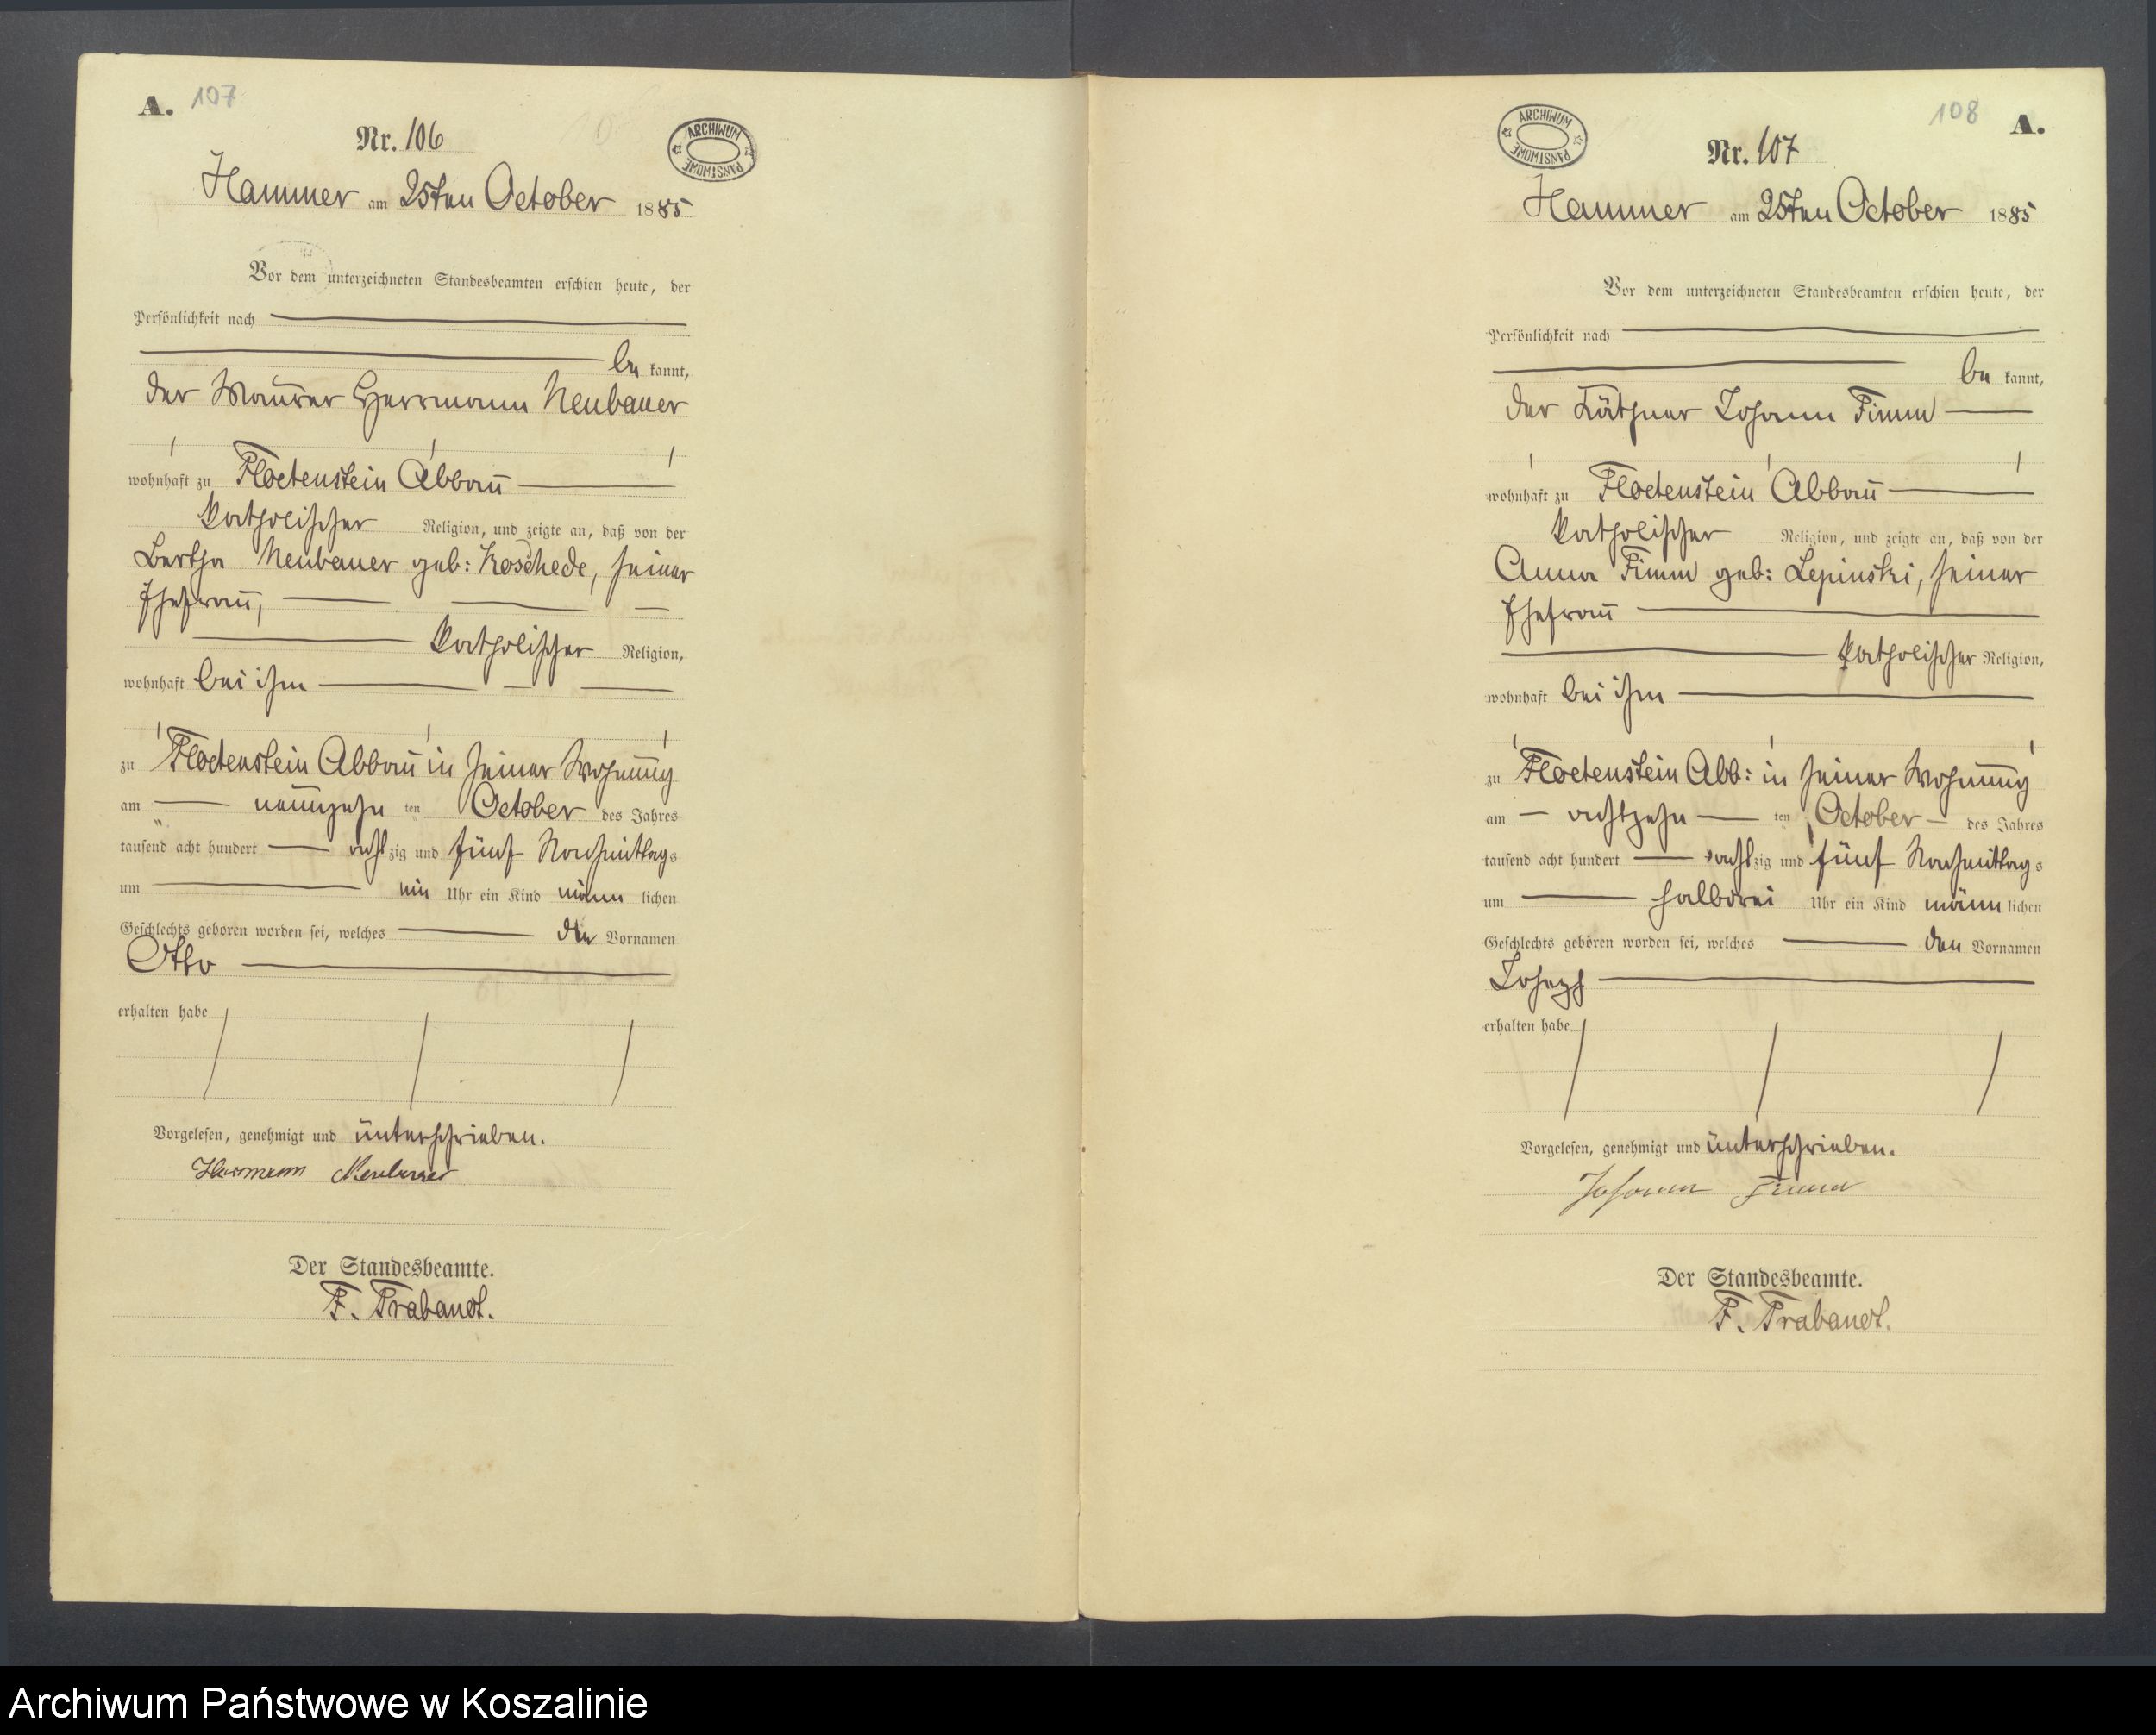 A. 107
Nr. 106
ARCHIWUM PAŃSTWOWE
Hammer am 25ten October 1885
Vor dem unterzeichneten Standesbeamten erschien heute, der
Persönlichkeit nach
be kannt,
der Maurer Herrmann Neubauer
wohnhaft zu Floetenstein Abbau
katholischer Religion, und zeigte an, daß von der
Bertha Neubauer geb: Koschede, seiner
Ehefrau,
katholischer Religion,
wohnhaft bei ihm
zu Floetenstein Abbau in seiner Wohnung
am neunzehn ten October des Jahres
tausend acht hundert acht zig und fünf Nachmittags
um ein Uhr ein Kind männ lichen
Geschlechts geboren worden sei, welches den Vornamen
Otto
erhalten habe
Vorgelesen, genehmigt und unterschrieben.
Hermann Neubauer
Der Standesbeamte.
F. Trabandt.
108 A.
ARCHIWUM PAŃSTWOWE
Nr. 107
Hammer am 25ten October 1885
Vor dem unterzeichneten Standesbeamten erschien heute, der
Persönlichkeit nach
be kannt,
der Käthner Johann Timm
wohnhaft zu Floetenstein Abbau
katholischer Religion, und zeigte an, daß von der
Anna Timm geb: Lepinski, seiner
Ehefrau
katholischer Religion,
wohnhaft bei ihm
zu Floetenstein Abb: in seiner Wohnung
am achtzehn ten October des Jahres
tausend acht hundert acht zig und fünf Nachmittags
um halbdrei Uhr ein Kind männ lichen
Geschlechts geboren worden sei, welches den Vornamen
Joseph
erhalten habe
Vorgelesen, genehmigt und unterschrieben.
Johann Timm
Der Standesbeamte.
F. Trabandt.
Archiwum Państwowe w Koszalinie